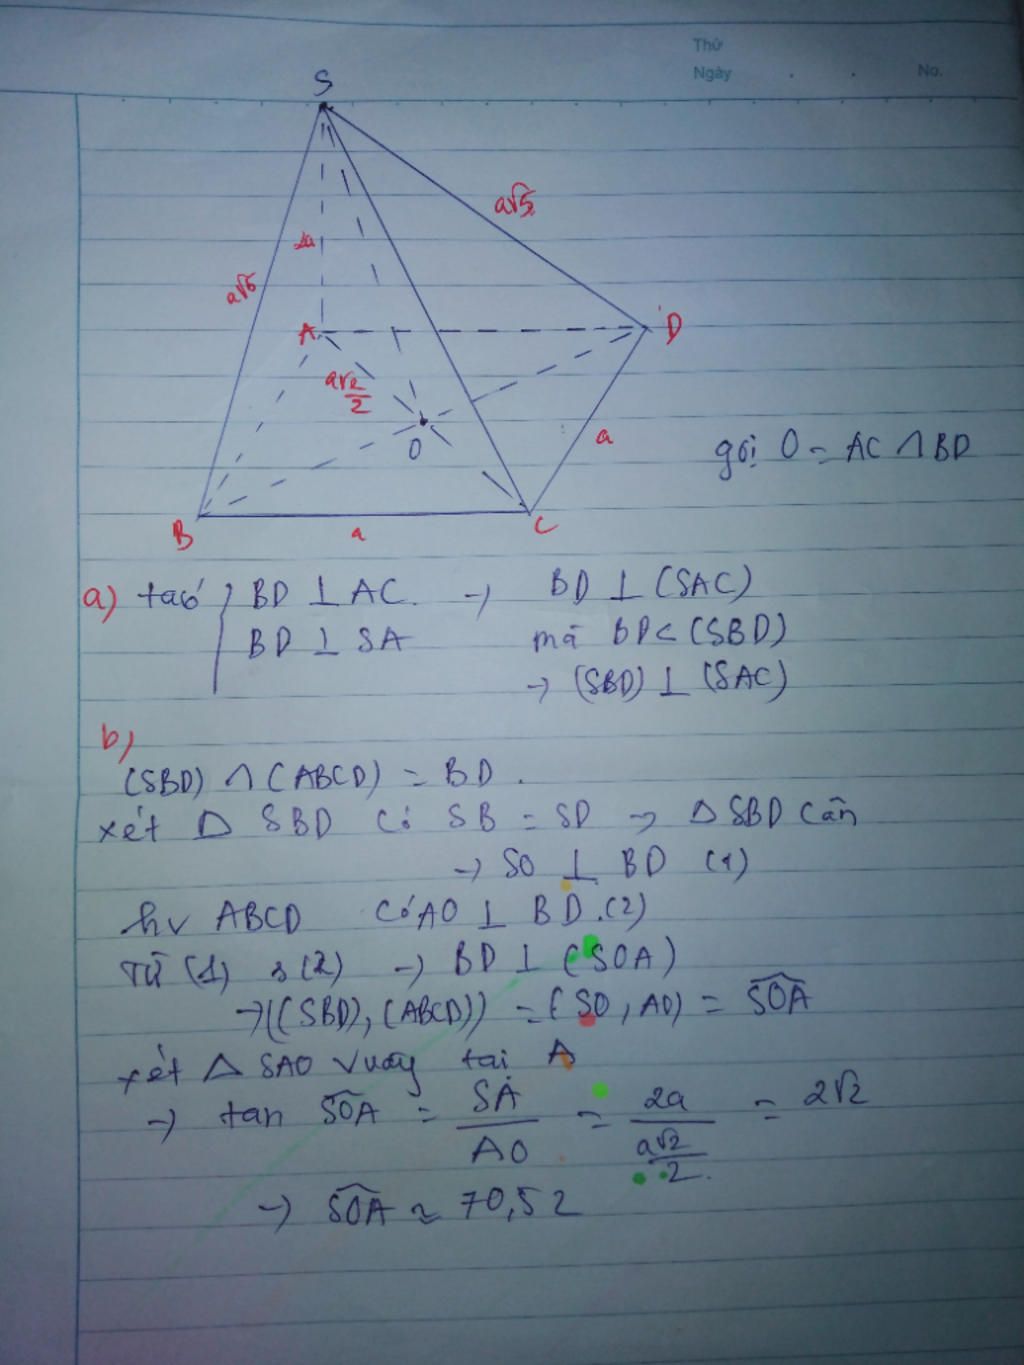 Thứ
Ngày . . No.
S
a√5
2a
a√5
A
D
a√2/2
O
a
gọi O = AC ∩ BD
B
a
C
a) ta có { BD ⊥ AC. → BD ⊥ (SAC)
BD ⊥ SA mà BD ⊂ (SBD)
→ (SBD) ⊥ (SAC)
b)
(SBD) ∩ (ABCD) = BD.
xét Δ SBD có SB = SD → Δ SBD cân
→ SO ⊥ BD (1)
hv ABCD có AO ⊥ BD.(2)
Từ (1) & (2) → BD ⊥ (SOA)
→ ((SBD), (ABCD)) = (SO, AO) = SOA
xét Δ SAO vuông tại A
→ tan SOA = SA/AO = 2a/(a√2/2) = 2√2
→ SOA ≈ 70,52